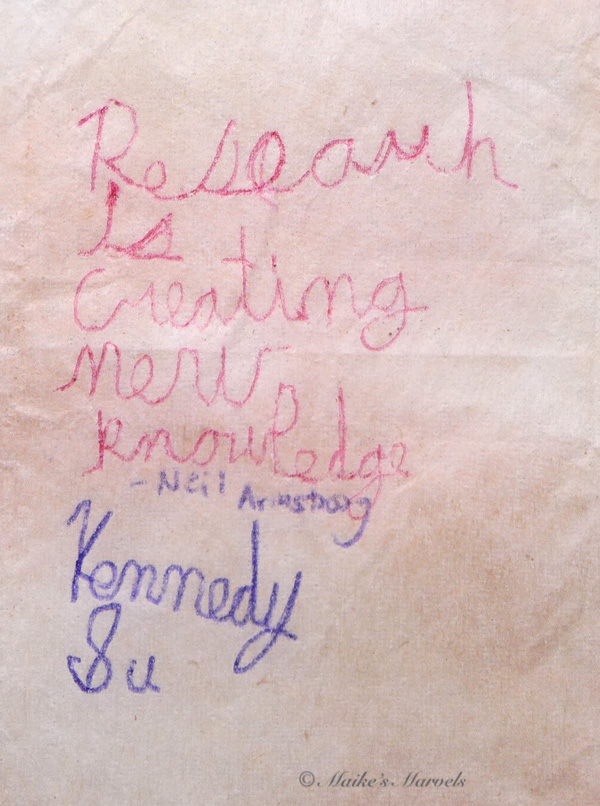 Research
Is
creating
new
knowledge
- Neil Armstrong
Kennedy
Su
© Maike's Marvels